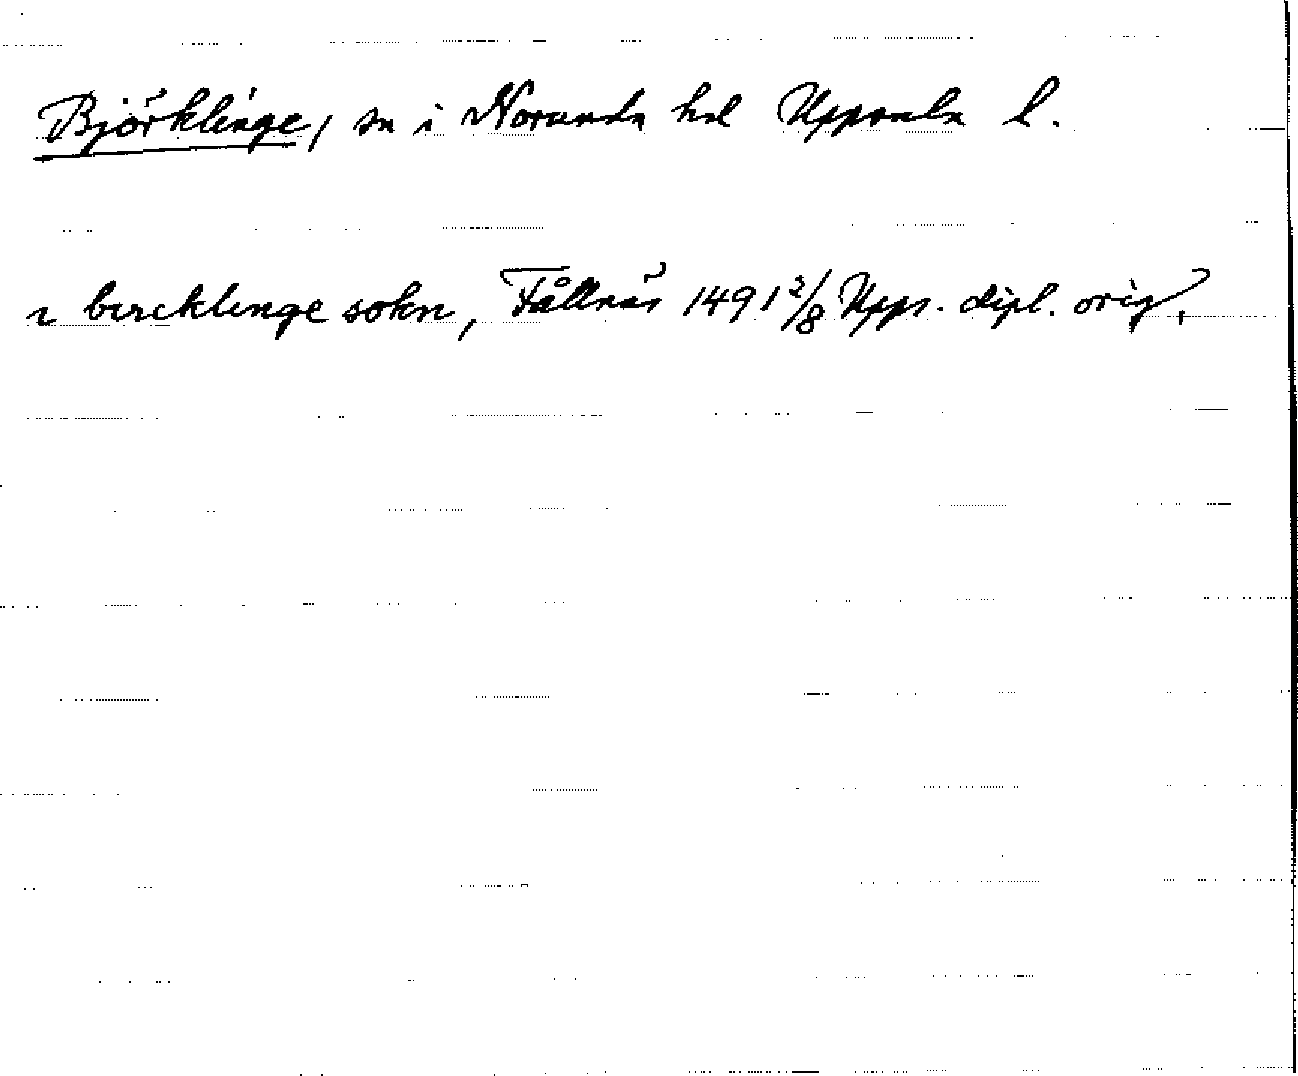 Björklinge, sn i Norunda hd Uppsala l.
ı bircklinge sokn, Fållnäs 1491 2/8 Upps. dipl. orig.